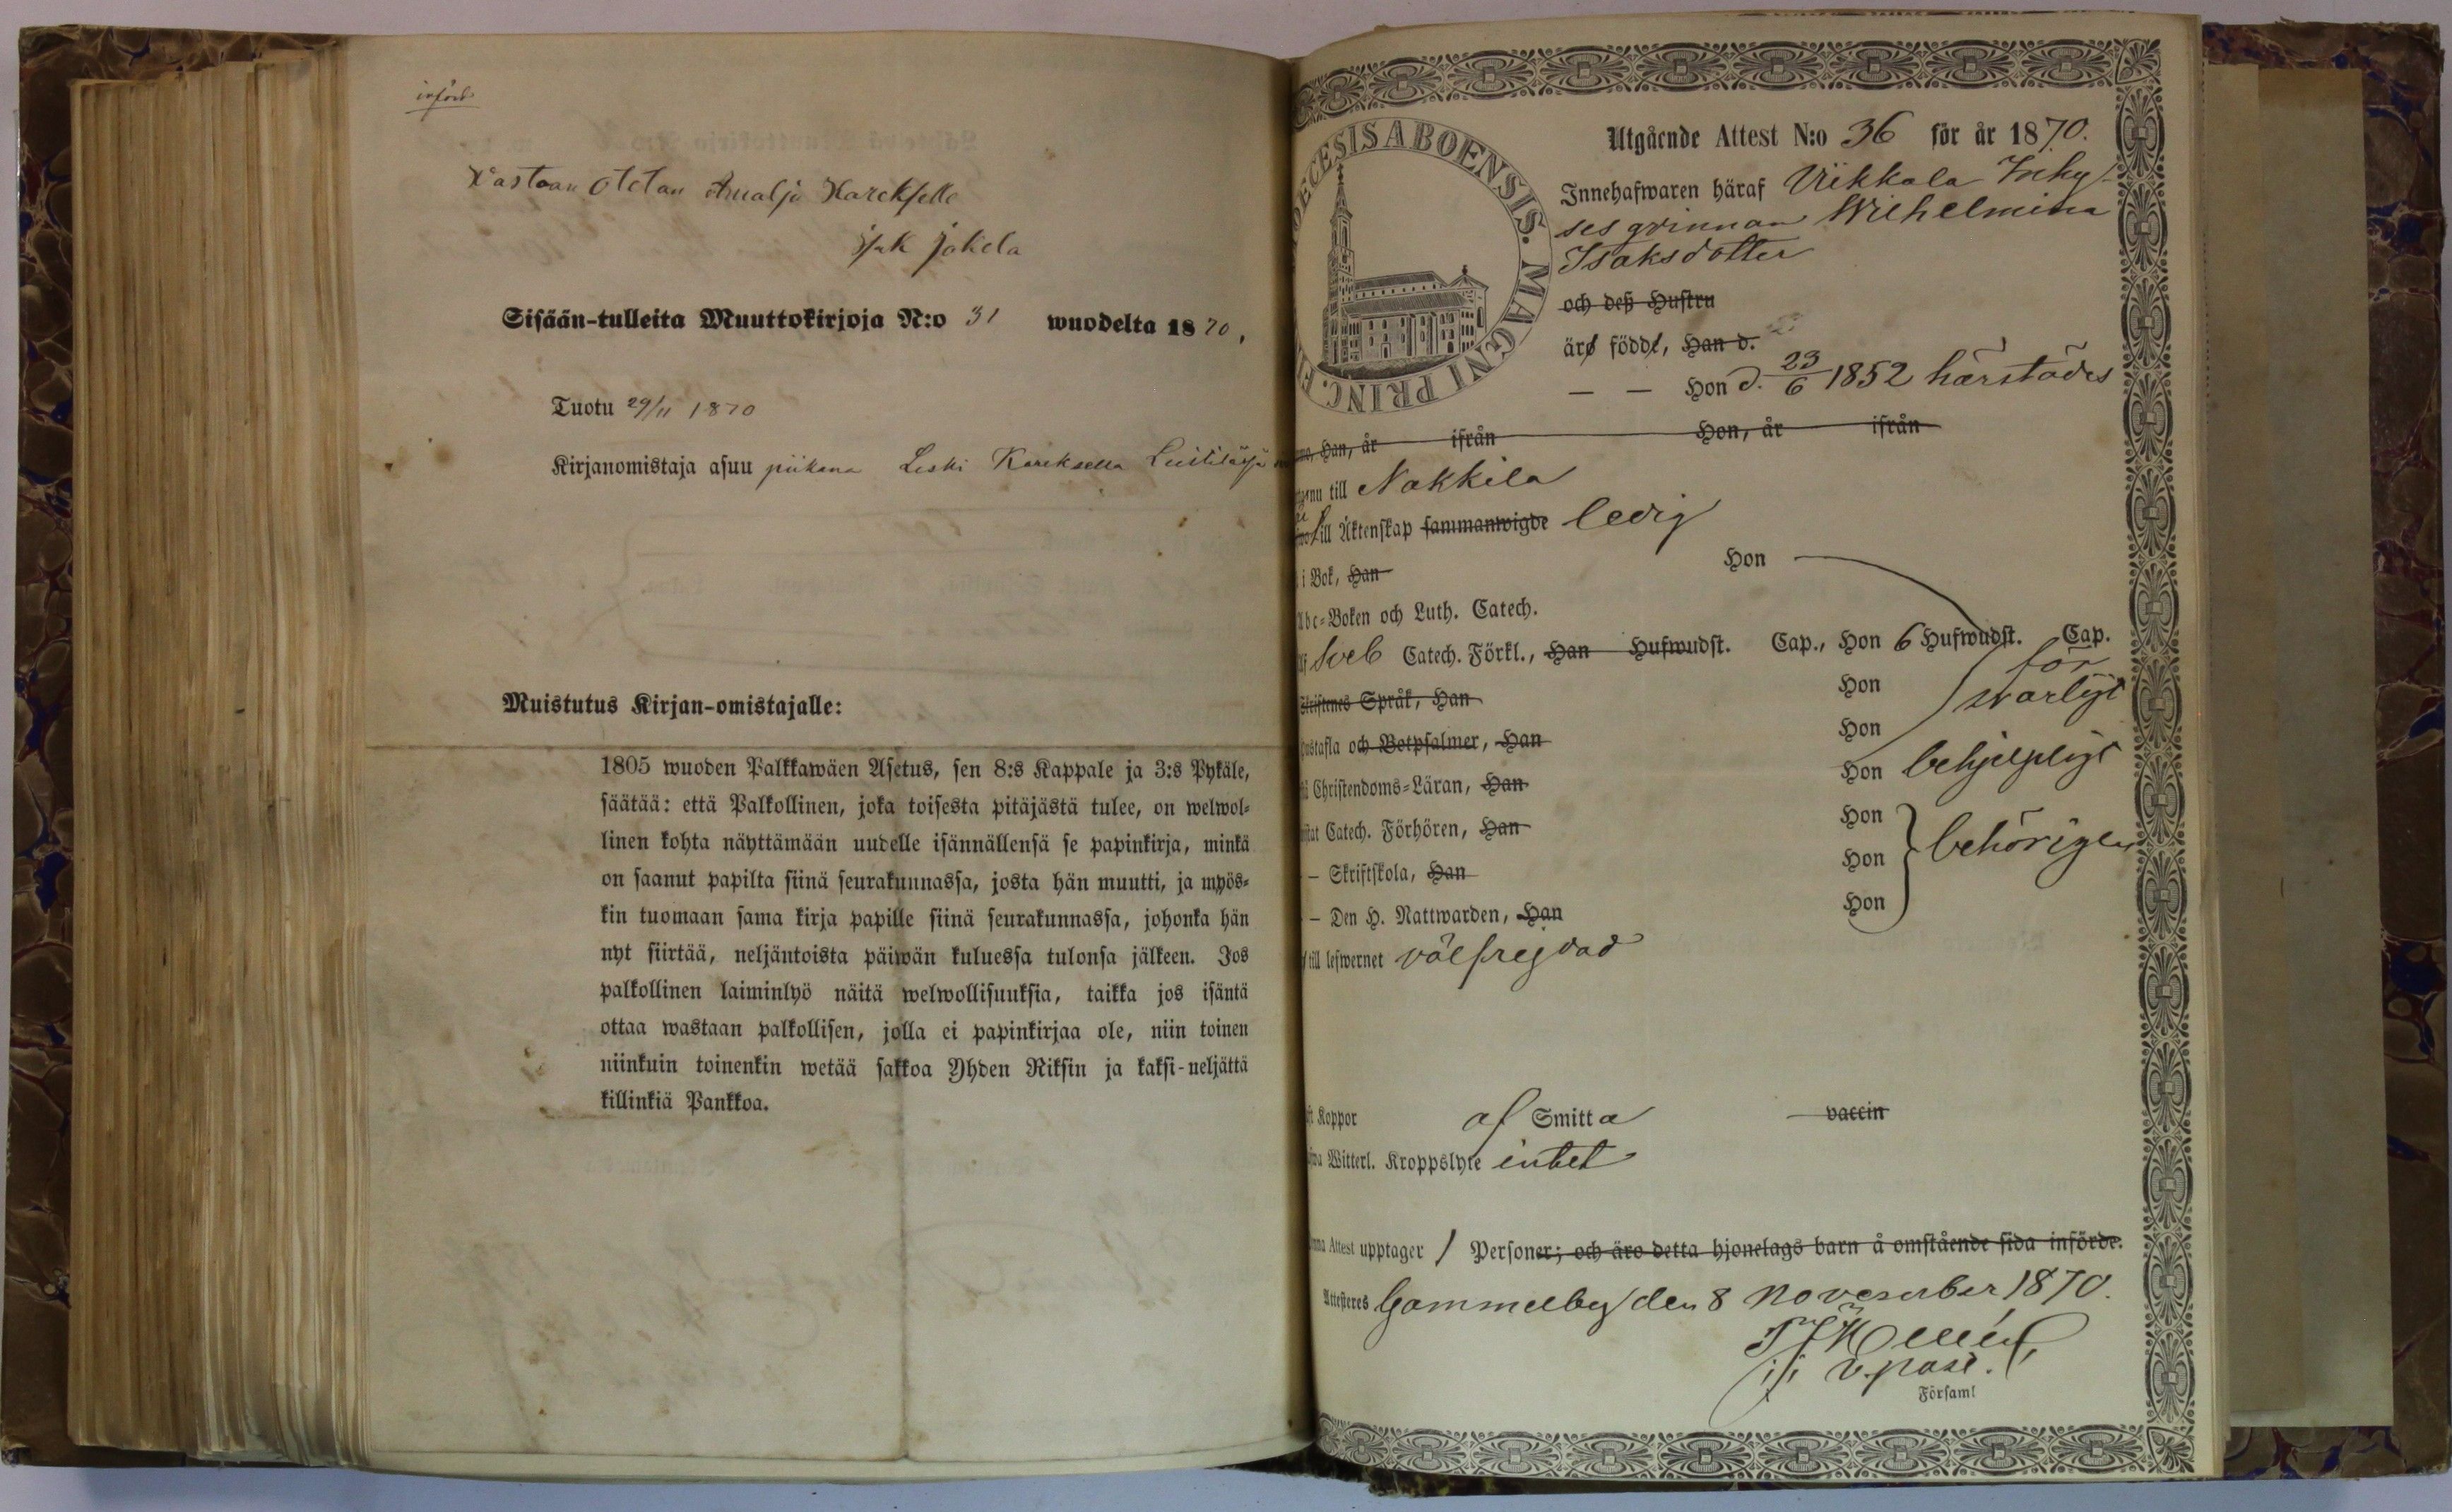 införd
Wastaan Otetan Amalja Kareksella
Jak Jakela
Sisään-tulleita Muuttokirjoja N:o 31 wuodelta 1870,
Tuotu 29/11 1870
Kirjanomistaja asuu piikana Leski Kareksella
Muistutus Kirjan-omistajalle:
1805 wuoden Palkkawäen Asetus, sen 8:s Kappale ja 3:s Pykäle,
säätää: että Palkollinen, joka toisesta pitäjästä tulee, on welwol-
linen kohta näyttämään uudelle isännällensä se papinkirja, minkä
on saanut papilta siinä seurakunnassa, josta hän muutti, ja myös-
kin tuomaan sama kirja papille siinä seurakunnassa, johonka hän
nyt siirtää, neljäntoista päiwän kuluessa tulonsa jälkeen. Jos
palkollinen laiminlyö näitä welwollisuuksia, taikka jos isäntä
ottaa wastaan palkollisen, jolla ei papinkirjaa ole, niin toinen
niinkuin toinenkin wetää sakkoa Yhden Riksin ja kaksi-neljättä
killinkiä Pankkoa.
DIOECESIS ABOENSIS. MAGNI PRINC. FI
Utgående Attest N:o 36 för år 1870.
Innehafwaren häraf Viikkala Inhy-
ses qvinnan Wilhelmina
Isaksdotter
och deß Hustru
äro född, Han d.
— — Hon d. 23/6 1852 härstädes
Han, år ifrån Hon, år ifrån
till Nakkila
till Äktenskap sammanwigde ledig
i Bok, Han Hon
Abc-Boken och Luth. Catech.
Sveb Catech. Förkl., Han Hufwudst. Cap., Hon 6 Hufwudst. Cap.
för
Skriftenes Språk, Han Hon svarligt
Hustafla och Botpsalmer, Han Hon
Christendoms-Läran, Han Hon behjelpligt
Catech. Förhören, Han Hon
— Skriftskola, Han Hon behörigen
— Den H. Nattwarden, Han Hon
till lefwernet välfrejdad
Koppor af Smitta vaccin
Witterl. Kroppslyte intet
Attest upptager 1 Personer; och äro detta hjonelags barn å omstående sida införde.
Attesteres Gammelby den 8 November 1870.
v. past.
Församl